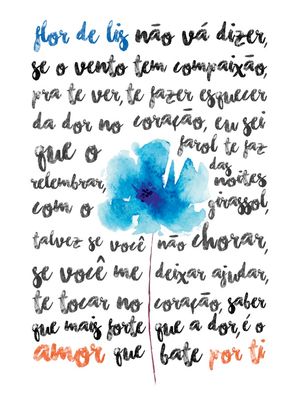 flor de lis não vá dizer,
se o vento tem compaixão,
pra te ver, te fazer esquecer
da dor no coração, eu sei
que o farol te faz
relembrar, das noites
com o girassol,
talvez se você não chorar,
se você me deixar ajudar,
te tocar no coração, saber
que mais forte que a dor, é o
amor que bate por ti